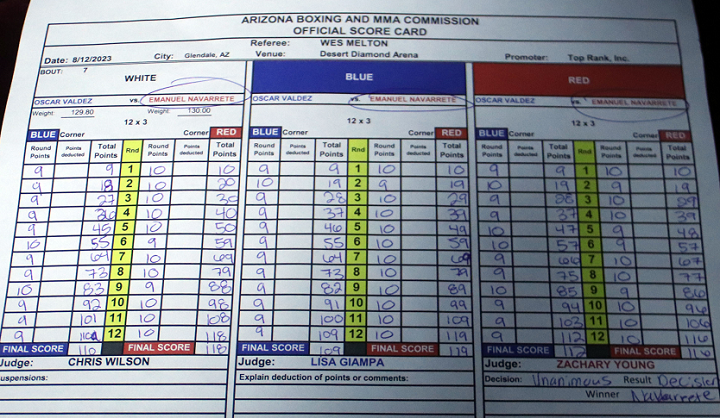 ARIZONA BOXING AND MMA COMMISSION
OFFICIAL SCORE CARD
Referee: WES MELTON
Date: 8/12/2023 City: Glendale, AZ Venue: Desert Diamond Arena Promoter: Top Rank, Inc.
BOUT: 7
WHITE BLUE RED
OSCAR VALDEZ vs. EMANUEL NAVARRETE OSCAR VALDEZ vs. EMANUEL NAVARRETE OSCAR VALDEZ vs. EMANUEL NAVARRETE
Weight: 129.80 Weight: 130.00
12 x 3 12 x 3 12 x 3
BLUE Corner Corner RED BLUE Corner Corner RED BLUE Corner Corner RED
Round Points Points deducted Total Points Rnd Round Points Points deducted Total Points Round Points Points deducted Total Points Rnd Round Points Points deducted Total Points Round Points Points deducted Total Points Rnd Round Points Points deducted Total Points
9 9 1 10 10 9 9 1 10 10 9 9 1 10 10
9 18 2 10 20 10 19 2 9 19 10 19 2 9 19
9 27 3 10 30 9 28 3 10 29 9 28 3 10 29
9 36 4 10 40 9 37 4 10 39 9 37 4 10 39
9 45 5 10 50 9 46 5 10 49 10 47 5 9 48
10 55 6 9 59 9 55 6 10 59 10 57 6 9 57
9 64 7 10 69 9 64 7 10 69 9 66 7 10 67
9 73 8 10 79 9 73 8 10 79 9 75 8 10 77
10 83 9 9 88 9 82 9 10 89 10 85 9 9 86
9 92 10 10 98 9 91 10 10 99 9 94 10 10 96
9 101 11 10 108 9 100 11 10 109 9 103 11 10 106
9 110 12 10 118 9 109 12 10 119 9 112 12 10 116
FINAL SCORE 110 FINAL SCORE 118 FINAL SCORE 109 FINAL SCORE 119 FINAL SCORE 112 FINAL SCORE 116
Judge: CHRIS WILSON Judge: LISA GIAMPA Judge: ZACHARY YOUNG
uspensions: Explain deduction of points or comments: Decision: Unanimous Result Decision
Winner Navarrete